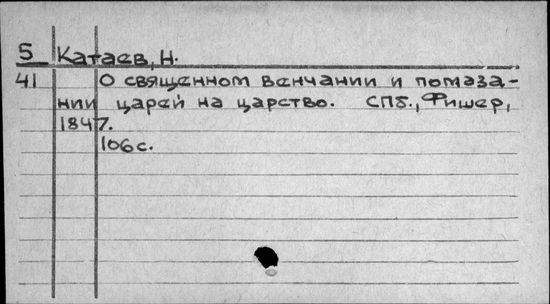 5 Катаев, Н.
41 О священном венчании и помаза-
нии царей на царство. СПб., Фишер,
1847.
106 с.